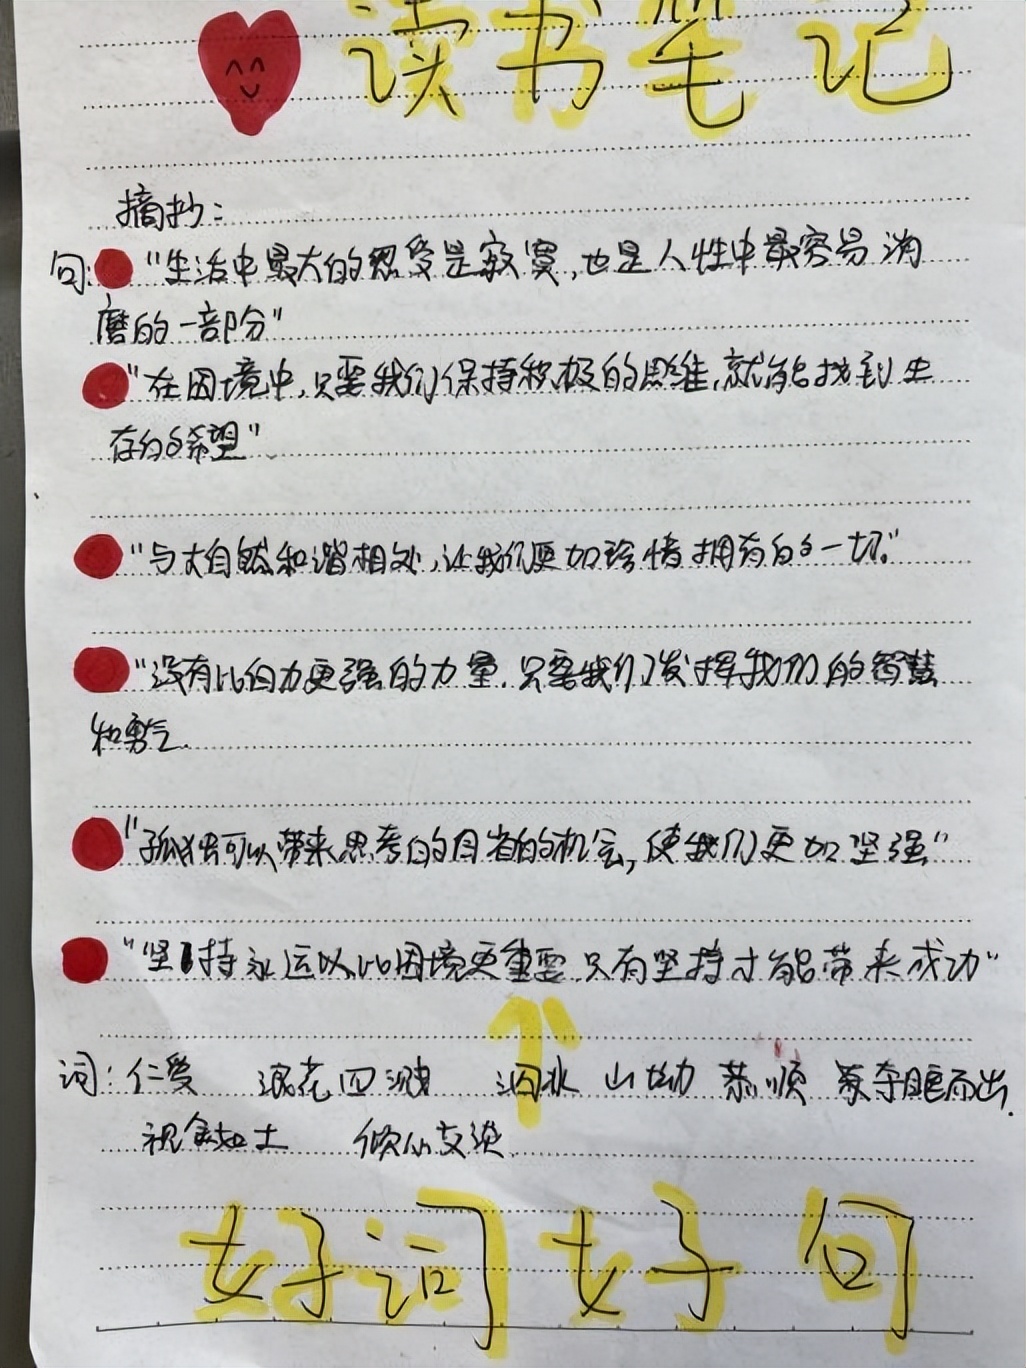 读书笔记
摘抄:
句:"生活中最大的忍受是寂寞,也是人性中最容易消
磨的一部分"
"在困境中,只要我们保持积极的思维,就能找到生
存的希望"
"与大自然和谐相处,让我们更加珍惜拥有的一切。"
"没有比自力更强的力量.只要我们发挥我们的智慧
和勇气.
"孤独可以带来思考的自省的机会,使我们更加坚强"
"坚持永远以比困境更重要.只有坚持才能带来成功"
词:仁爱 浪花四溅 泅水 山坳 恭顺 夺眶而出.
视金如土 倾心交谈
好词好句